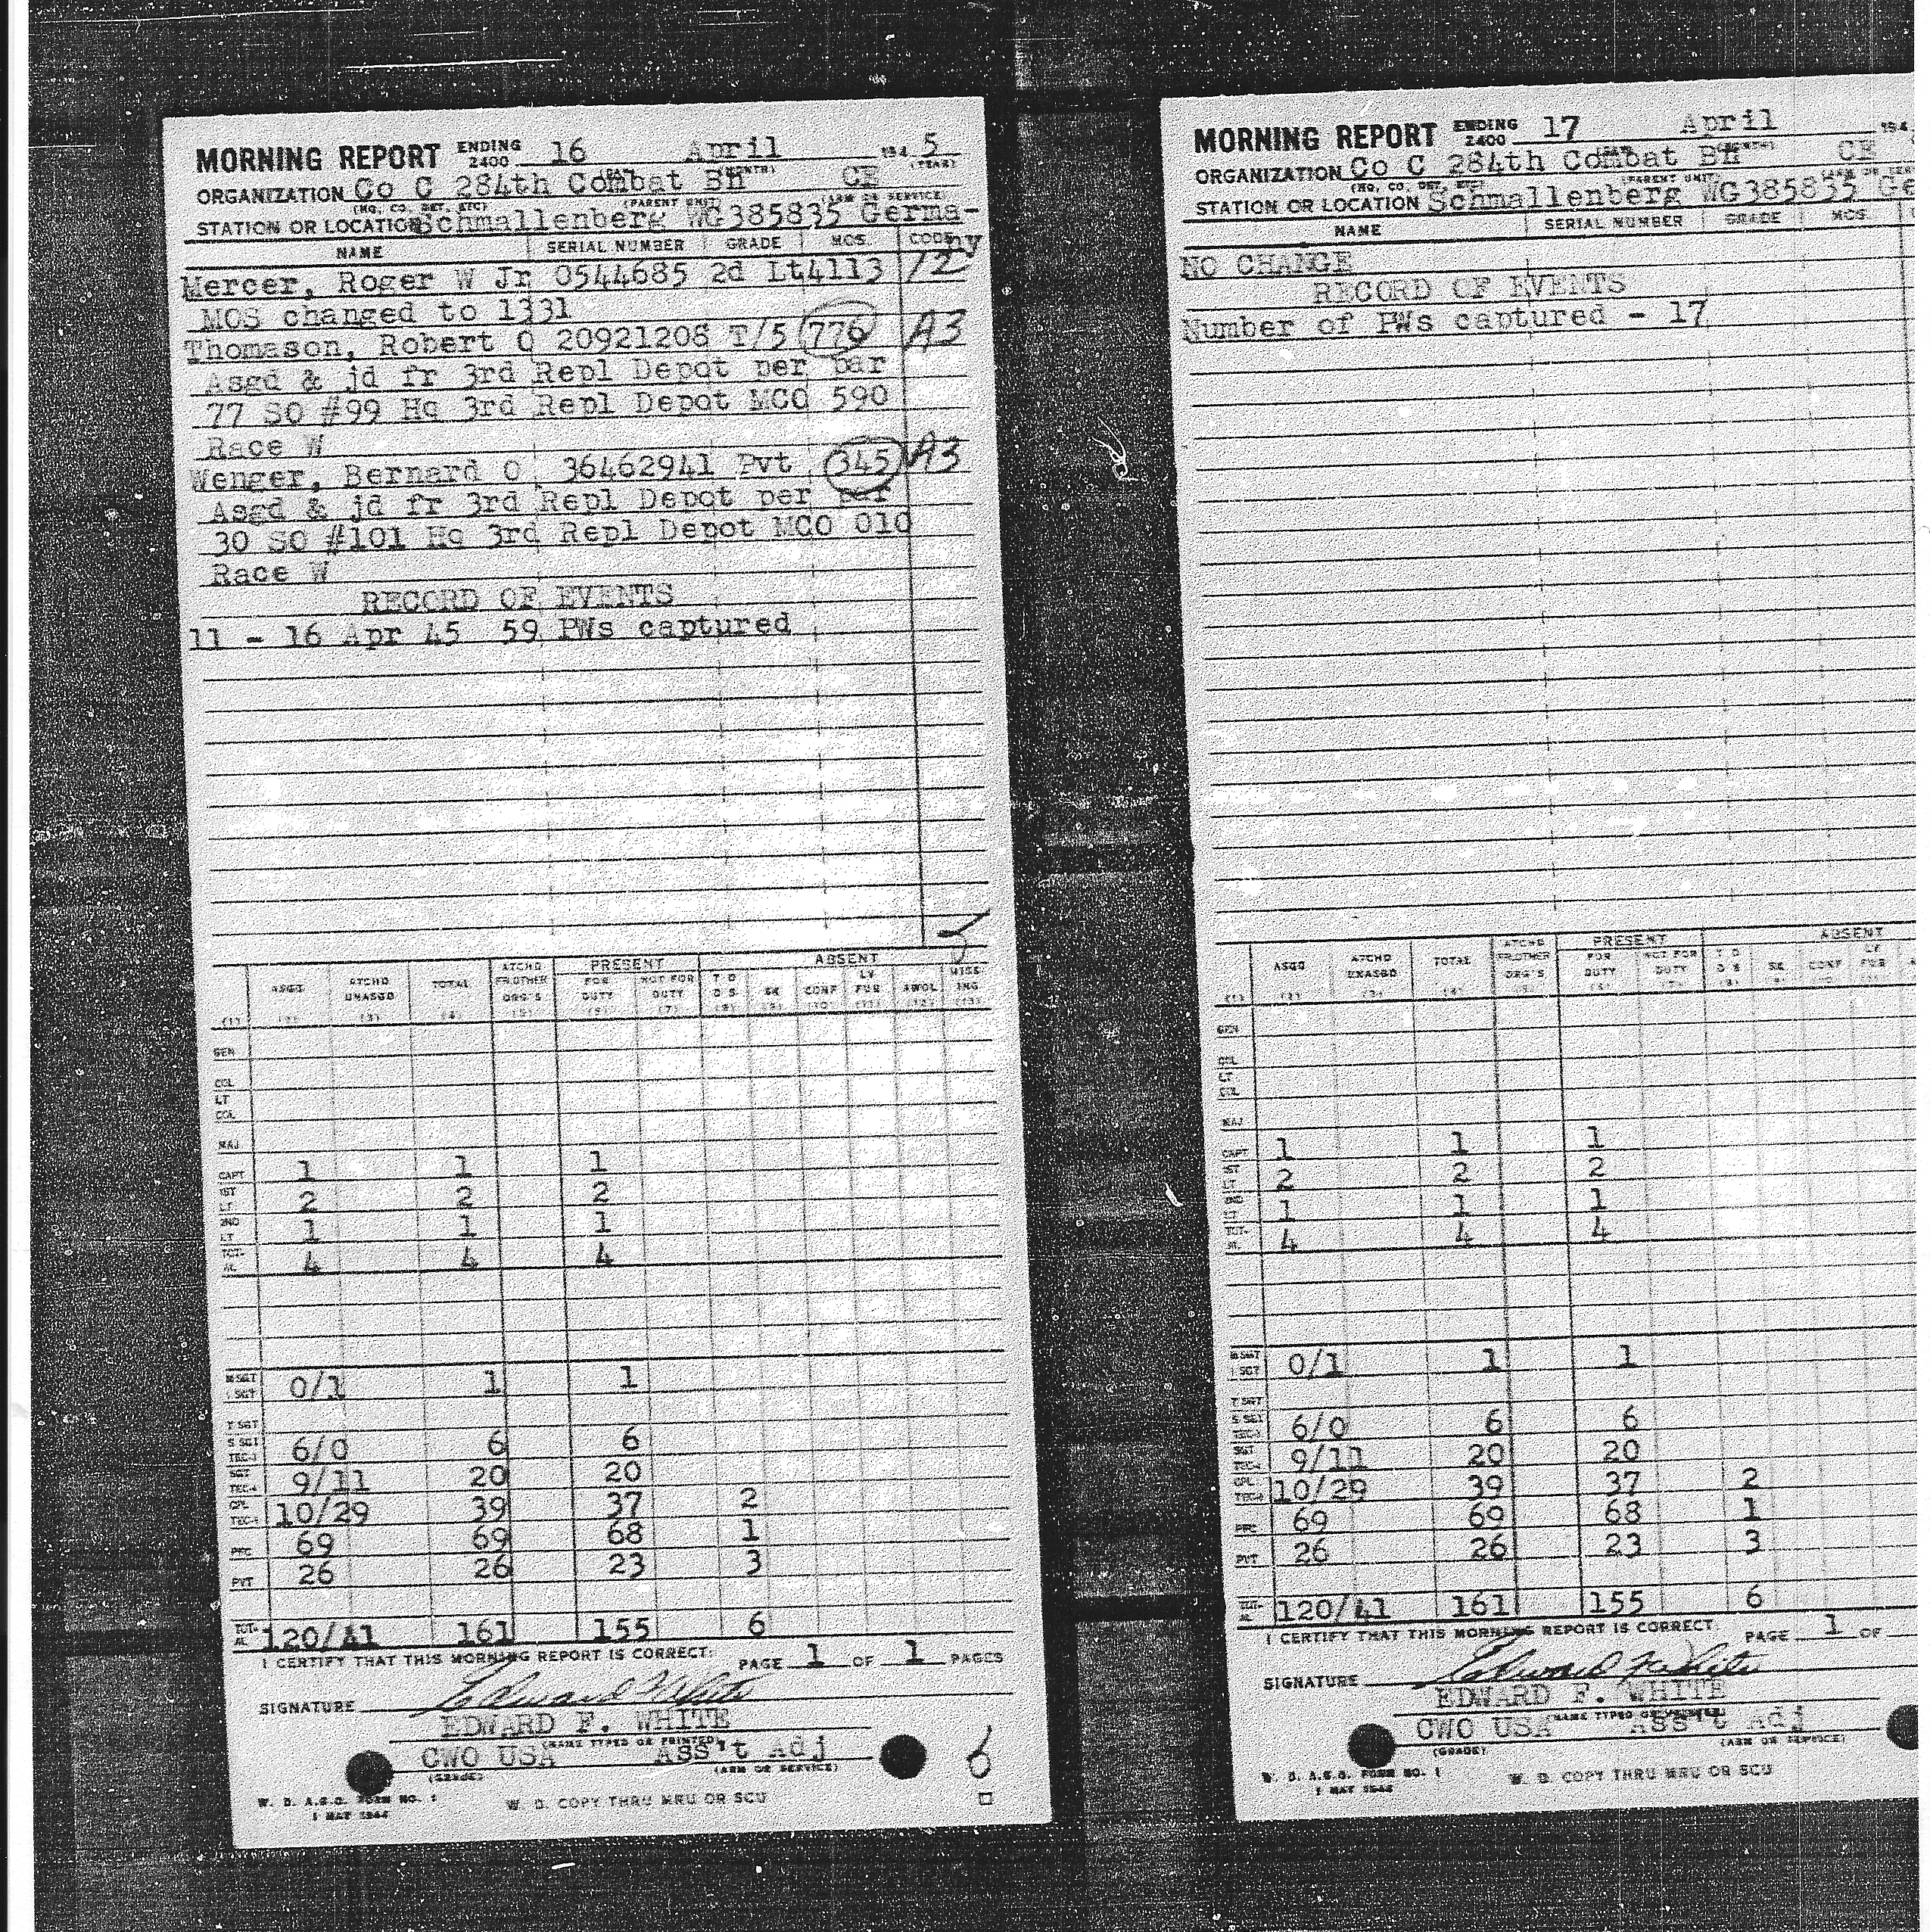 MORNING REPORT ENDING 2400 16 April 194 5
(DAY) (MONTH) (YEAR)
ORGANIZATION Co C 284th Combat Bn CE
(HQ, CO, DET, ETC) (PARENT UNIT) (ARM OR SERVICE)
STATION OR LOCATION Schmallenberg WG385835 Germa-
ny
NAME SERIAL NUMBER GRADE MOS. CODE
Mercer, Roger W Jr 0544685 2d Lt 4113 12
MOS changed to 1331
Thomason, Robert O 20921208 T/5 776 A3
Asgd & jd fr 3rd Repl Depot per par
77 SO #99 Hq 3rd Repl Depot MCO 590
Race W
Wenger, Bernard O 36462941 Pvt 345 A3
Asgd & jd fr 3rd Repl Depot per par
30 SO #101 Hq 3rd Repl Depot MCO 010
Race W
RECORD OF EVENTS
11 - 16 Apr 45 59 PWs captured
PRESENT ABSENT
ASGD ATCHD UNASGD TOTAL ATCHD FR OTHER ORG'S FOR DUTY NOT FOR DUTY T D D S SK CONF LV FUR AWOL MISSING
(1) (2) (3) (4) (5) (6) (7) (8) (9) (10) (11) (12) (13)
GEN
COL
LT COL
MAJ
CAPT 1 1 1
1ST LT 2 2 2
2ND LT 1 1 1
TOTAL 4 4 4
M SGT 1 SGT 0/1 1 1
T SGT
S SGT TEC-3 6/0 6 6
SGT TEC-4 9/11 20 20
CPL TEC-5 10/29 39 37 2
PFC 69 69 68 1
PVT 26 26 23 3
TOTAL 120/41 161 155 6
I CERTIFY THAT THIS MORNING REPORT IS CORRECT. PAGE 1 OF 1 PAGES
SIGNATURE Edward F White
EDWARD F. WHITE
(NAME TYPED OR PRINTED)
CWO USA Ass't Adj
(GRADE) (ARM OR SERVICE)
W. D. A.G.O. FORM NO. 1
1 MAY 1944
W. D. COPY THRU MRU OR SCU
MORNING REPORT ENDING 2400 17 April 194
ORGANIZATION Co C 284th Combat Bn CE
(HQ, CO, DET, ETC) (PARENT UNIT)
STATION OR LOCATION Schmallenberg WG385835 Ge
NAME SERIAL NUMBER GRADE MOS.
NO CHANGE
RECORD OF EVENTS
Number of PWs captured - 17
PRESENT ABSENT
ASGD ATCHD UNASGD TOTAL ATCHD FR OTHER ORG'S FOR DUTY NOT FOR DUTY T D D S SK CONF LV FUR
(1) (2) (3) (4) (5) (6) (7) (8)
GEN
COL
LT COL
MAJ
CAPT 1 1 1
1ST LT 2 2 2
2ND LT 1 1 1
TOTAL 4 4 4
M SGT 1 SGT 0/1 1 1
T SGT
S SGT TEC-3 6/0 6 6
SGT TEC-4 9/11 20 20
CPL TEC-5 10/29 39 37 2
PFC 69 69 68 1
PVT 26 26 23 3
TOTAL 120/41 161 155 6
I CERTIFY THAT THIS MORNING REPORT IS CORRECT. PAGE 1 OF
SIGNATURE Edward F White
EDWARD F. WHITE
(NAME TYPED OR PRINTED)
CWO USA Ass't Adj
(GRADE) (ARM OR SERVICE)
W. D. A.G.O. FORM NO. 1
1 MAY 1944
W. D. COPY THRU MRU OR SCU